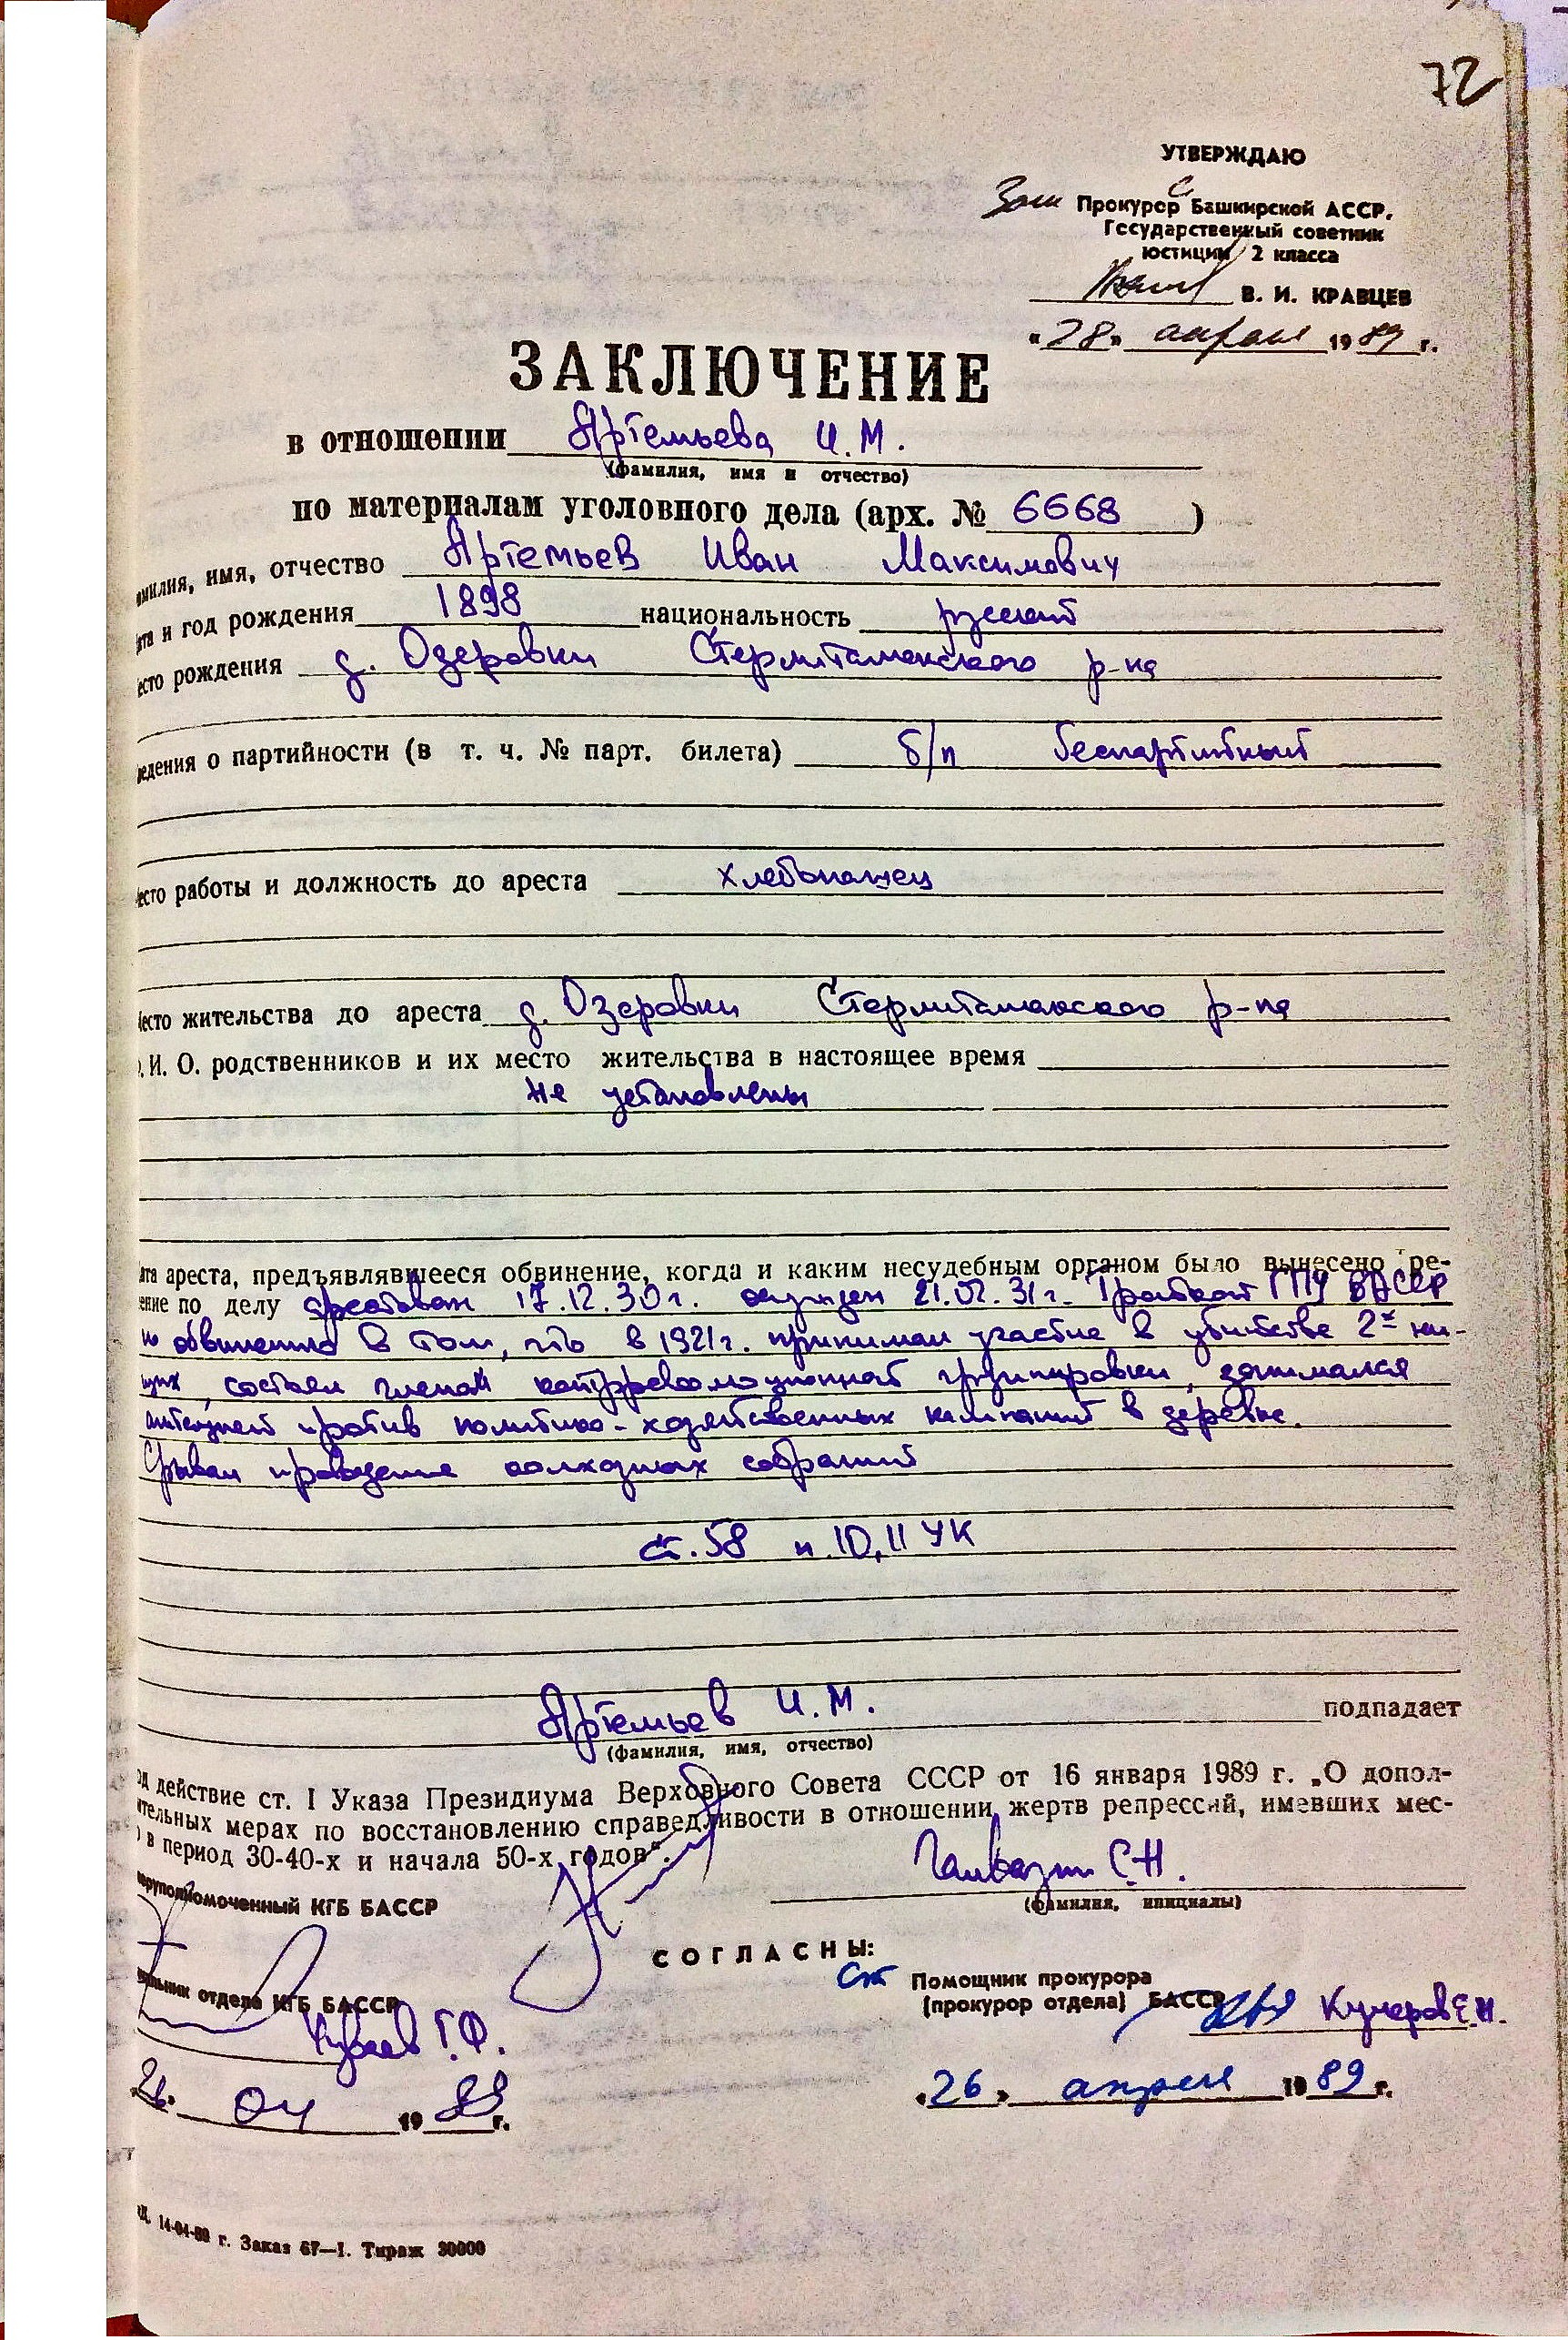 72
УТВЕРЖДАЮ
Зам Прокурор Башкирской АССР.
Государственный советник
юстиции 2 класса
В. И. КРАВЦЕВ
"28" апреля 1989 г.
ЗАКЛЮЧЕНИЕ
в отношении Артемьева И.М.
(фамилия, имя и отчество)
по материалам уголовного дела (арх. № 6668 )
амилия, имя, отчество Артемьев Иван Максимович
ата и год рождения 1898 национальность русский
есто рождения д. Озеровки Стерлитамакского р-на
ведения о партийности (в т. ч. № парт. билета) б/п беспартийный
есто работы и должность до ареста хлебопашец
Место жительства до ареста д. Озеровки Стерлитамакского р-на
. И. О. родственников и их место жительства в настоящее время
не установлены
ата ареста, предъявлявшееся обвинение, когда и каким несудебным органом было вынесено ре-
ение по делу арестован 17.12.30 г. осужден 21.02.31 г. Тройкой ГПУ БАССР
по обвинению в том, что в 1921 г. принимал участие в убийстве 2х
состоял членом контрреволюционной группировки, занимался
агитацией против политико-хозяйственных кампаний в деревне.
Срывал проведение колхозных собраний
ст. 58 п. 10, 11 УК
Артемьев И.М. подпадает
(фамилия, имя, отчество)
од действие ст. I Указа Президиума Верховного Совета СССР от 16 января 1989 г. „О допол-
ительных мерах по восстановлению справедливости в отношении жертв репрессий, имевших мес-
о в период 30-40-х и начала 50-х годов".
еруполномоченный КГБ БАССР
С.Н.
(фамилия, инициалы)
СОГЛАСНЫ:
альник отдела КГБ БАССР
Г.Ф.
Ст Помощник прокурора
(прокурор отдела) БАССР Кучеров Е.Н.
26. 04 1989 г.
"26" апреля 1989 г.
14-04-89 г. Заказ 67—I. Тираж 30000